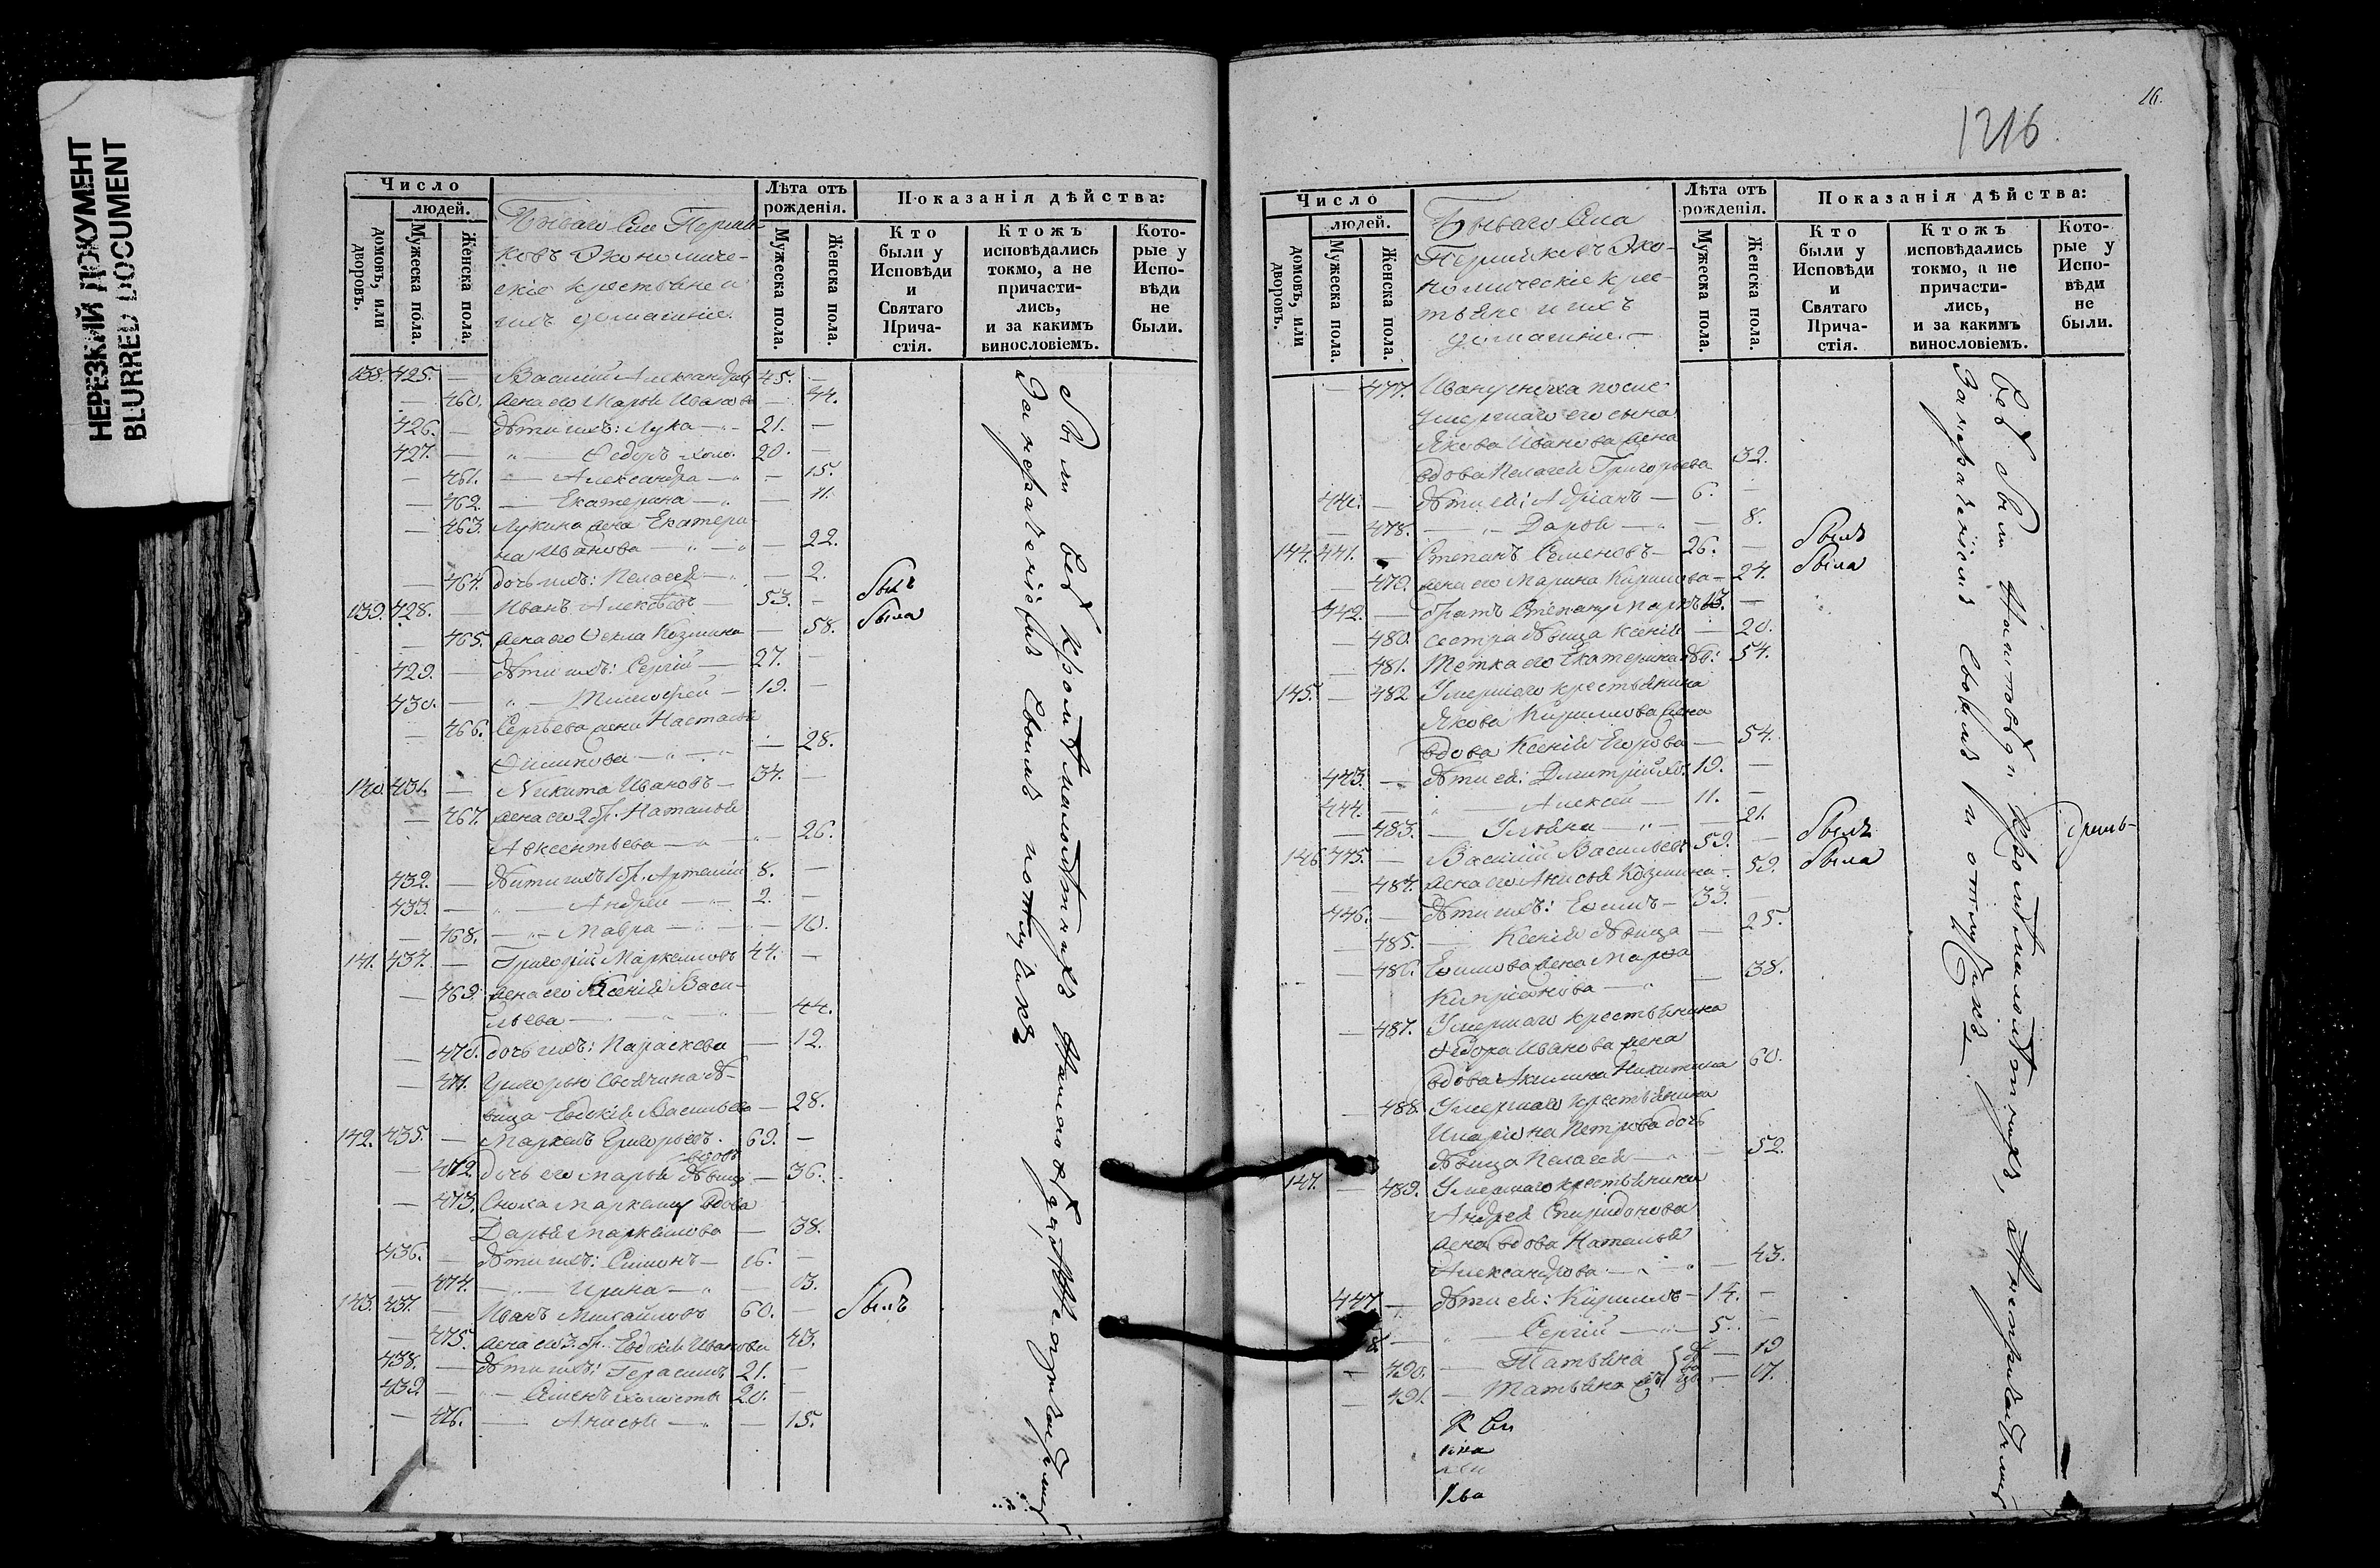 НЕРЕЗКИЙ ДОКУМЕНТ
BLURRED DOCUMENT
Число
людей.
домовъ, или дворовъ.
Мужеска пола.
Женска пола.
Лѣта отъ рожденія.
Мужеска пола.
Женска пола.
Показанія дѣйства:
Кто были у Исповѣди и Святаго Прича-стія.
Ктожъ исповѣдались токмо, а не причасти-лись, и за какимъ винословіемъ.
Кото-рые у Испо-вѣди не были.
ковъ Экономиче-
скіе крестьяне и
ихъ домашніе.
138. 425. — Василій Александровъ 45. —
— 460. жена его Марья Иванова — 44.
426. — дѣти ихъ: Лука — 21. —
427. — " — Ѳедоръ холо. 20. —
— 461. — Александра — — 15.
— 462. — Екатерина — — 11.
— 463. Лукина жена Екатери-
на Иванова — — 22.
— 464. дочь ихъ: Пелагея — — 2.
139. 428. — Иванъ Алексѣевъ — 53. — былъ
— 465. жена его Ѳекла Козмина — 58. была
429. — дѣти ихъ: Сергій — 27. —
430. — " — Тимофей — 19. —
— 466. Сергѣева жена Настасья
— 28.
140. 431. — Никита Ивановъ — 34. —
— 467. жена его 2 бр. Наталья
Авксентьева — — 26.
432. — дѣти ихъ 1 бр. Артемій 8. —
433. — " — Андрей — 2. —
— 468. — " — Мавра — — 10.
141. 434. — Григорій Маркеловъ 44. —
— 469. жена его Ксенія Васи-
льева — — 44.
— 470. дочь ихъ: Параскева — 12.
— 471. Григорью своячина дѣ-
вица Евдокія Васильева — 28.
142. 435. — Маркелъ Григорьевъ. 69. —
вдовъ
— 472. дочь его Марья дѣвица — 36.
— 473. Сноха Маркелу вдова
Дарья Маркелова — 38.
436. — дѣти ихъ: Симонъ — 16. —
— 474. — Ирина — — 13.
143. 437. — Иванъ Михайловъ 60. — былъ
— 475. жена его 3. бр. Евдокія Иванова 43.
438. — дѣти ихъ: Герасимъ 21. —
439 — " — Семенъ холосты 20. —
— 476. — Анисья — — 15.
были всѣ кромѣ малолѣтнихъ
За нераченіемъ своимъ
16.
1216
Число
людей.
домовъ, или дворовъ.
Мужеска пола.
Женска пола.
Бываго Села
номическіе крес-
тьяне и ихъ
домашніе. —
Лѣта отъ рожденія.
Мужеска пола.
Женска пола.
Показанія дѣйства:
Кто были у Исповѣди и Святаго Прича-стія.
Ктожъ исповѣдались токмо, а не причасти-лись, и за какимъ винословіемъ.
Кото-рые у Испо-вѣди не были.
— 477. Ивану сноха после
умершаго его сына
Якова Иванова жена
вдова Пелагея Григорьева 32.
440. — дѣти ей: Адріанъ — 6. —
— 478. — Дарья — — 8.
144. 441. — Степанъ Семеновъ — 26. — былъ
— 479. жена его Марина Кирилова — 24. была
442. — братъ Степану 13. —
— 480. сестра дѣвица Ксенія — 20.
— 481. Тетка его Екатерина дѣ: 54.
145. — 482 Умершаго крестьянина
Якова Кирилова жена
вдова Ксенія Егорова — 54.
443. — дѣти ея: Дмитрій хо. 19. —
444. — " — Алексей — 11. —
— 483. — Ульяна — — 21.
146 445. — Василій Васильевъ 59. — былъ
— 484. жена его Анисья Козмина — 59. была
446. — дѣти ихъ: Ефимъ — 33. —
— 485. — Ксенія дѣвица — 25.
— 486. Ефимова жена Марфа
Кипріянова — — 38.
— 487. Умершаго крестьянина
Ѳедора Иванова жена
вдова Акилина Никитина 60.
— 488. Умершаго крестьянина
Иларіона Петрова дочь
дѣвица Пелагея — — 52.
147. — 489. Умершаго крестьянина
Андрея Спиридонова
жена вдова Наталья
Александрова — — 43.
447 — дѣти ей: Кирилъ — 14. —
8. — " — Сергій — 5. —
— 490. — Татьяна — 19
— 491. — Татьяна — 17.
всѣ были на исповѣди кромѣ малолѣтнихъ,
За нераченіемъ своимъ и